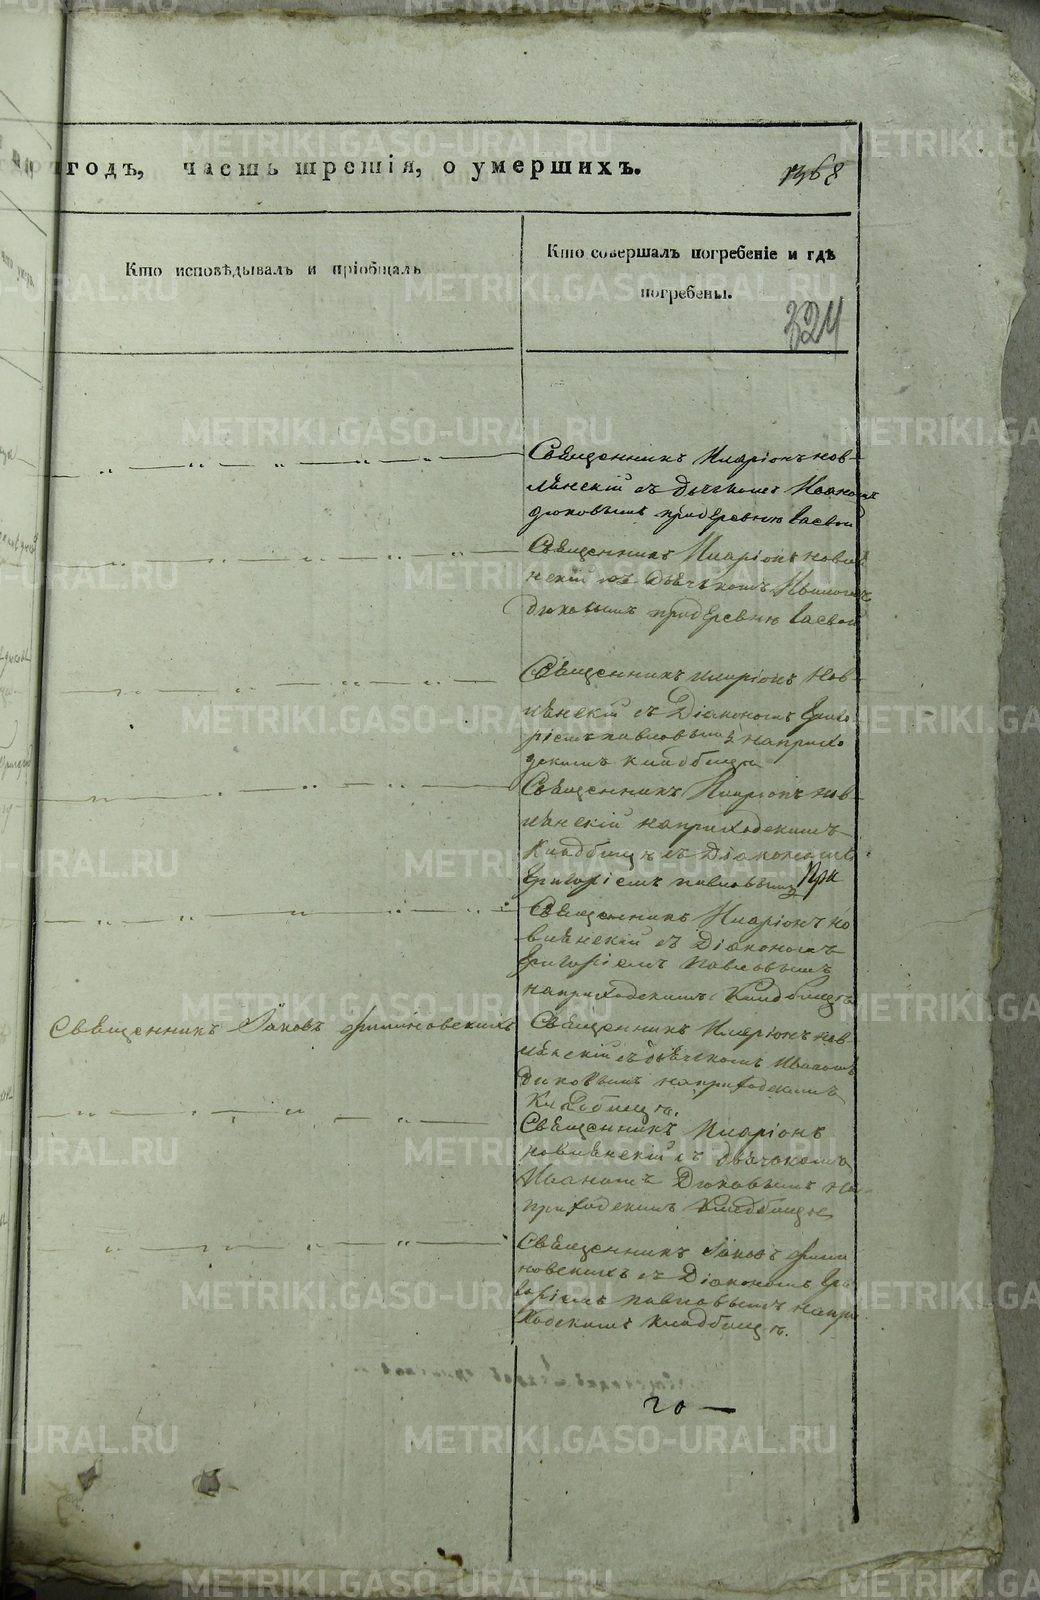 годъ, часть третія, о умершихъ.
1368
Кто исповѣдывалъ и пріобщалъ
Кто совершалъ погребеніе и гдѣ
погребены.
324
Священникъ Иларіонъ нов-
лянскій съ дьячкомъ Иваномъ
дюковымъ придеревню
Священникъ Иларіонъ новля
нскій съ Дьячкомъ Иваномъ
дюковымъ придеревню
Священникъ иларіонъ нов-
лянскій съ Діакономъ Григо
ріемъ павловымъ наприхо
дскомъ кладбище
Священникъ Иларіонъ нов-
лянскій наприходскомъ
кладбищѣ съ Діакономъ
Григоріемъ павловымъ
Священникъ Иларіонъ но
влянскій съ Діакономъ
Григоріемъ павловымъ
наприходскомъ Кладбищѣ
Священникъ Іаковъ
Священникъ Иларіонъ нов
лянскій съ дьячкомъ Иваномъ
дюковымъ наприходскомъ
Кладбищѣ.
Священникъ Иларіонъ
новлянскій съ дьячкомъ
Иваномъ Дюковымъ на
приходскомъ Кладбище
Священникъ Іаковъ
новскихъ съ Діакономъ Гри
горіемъ павловымъ напри
ходскомъ кладбищѣ.
20 —
METRIKI.GASO-URAL.RU